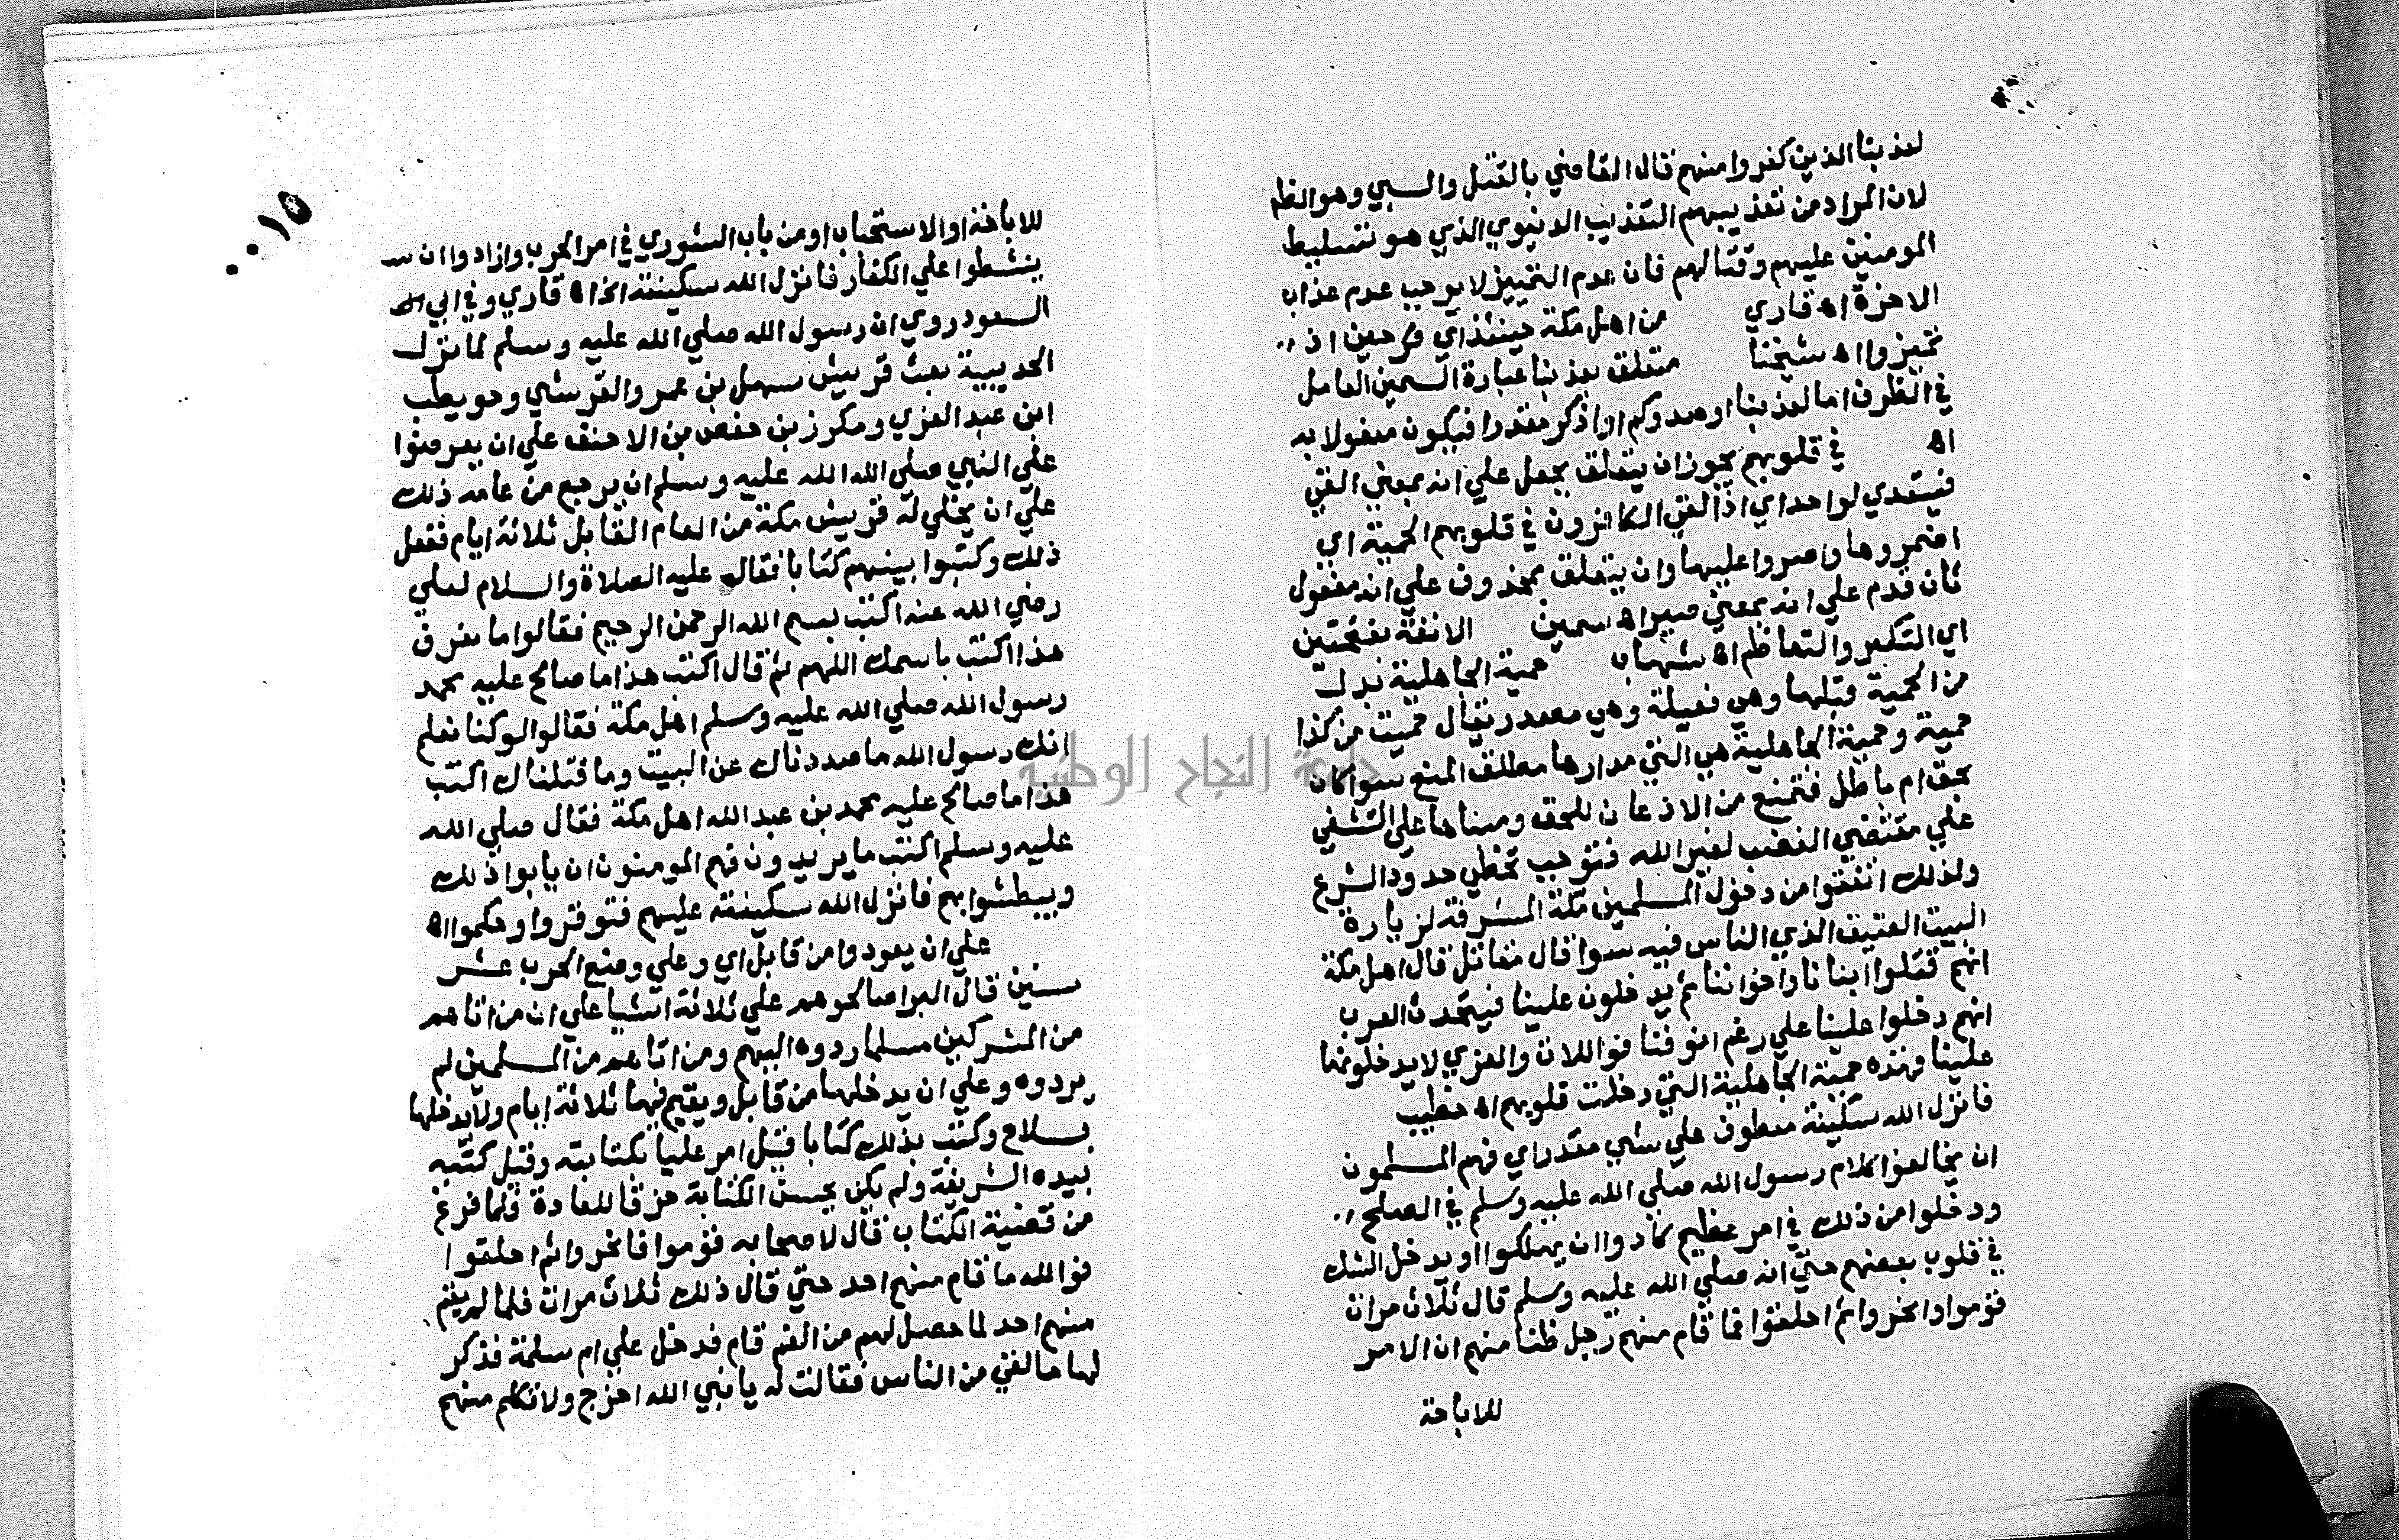 لعذبنا الذين كفروا منهم قال القاضي بالقتل والسبي وهو الظم
لان المراد من تعذيبهم التعذيب الدنيوي الذي هو تسليط
المومنين عليهم وقتالهم فان عدم التمييز لا يوجب عدم عذاب
الاخرة اه قاري من اهل مكة حينئذ اي فرحين اذ
تميزوا اه شيخنا متعلق بعذبنا عبارة السمين العامل
في الظرف اما لعذبنا او صدوكم او اذكر مقدرا فيكون مفعولا به
اه في قلوبهم يجوز ان يتعلق بجعل علي انه بمعني القي
فيتعدي لواحد اي اذ القي الكافرون في قلوبهم الحمية اي
اضمروها واصروا عليها وان يتعلق بمحذوف علي انه مفعول
ثان قدم علي انه بمعني صير اه سمين الانفة بفتحتين
اي التكبر والتعاظم اه شهاب حمية الجاهلية بدل
من الحمية قبلها وهي فعيلة وهي مصدر يقال حميت من كذا
حمية وحمية الجاهلية هي التي مدارها مطلق المنع سوا كان
بحق ام باطل فتمنع من الاذعان للحق ومبناها علي التشفي
علي مقتضي الغضب لغير الله فتوجب تخطي حدود الشرع
ولذلك انفتوا من دخول المسلمين مكة المشرفة لزيارة
البيت العتيق الذي الناس فيه سوا قال مقاتل قال اهل مكة
انهم قتلوا ابنانا واخواننا ثم يدخلون علينا فيتحدث العرب
انهم دخلوا علينا علي رغم انوفنا فواللات والعزي لا يدخلونها
علينا فهذه حمية الجاهلية التي دخلت قلوبهم اه خطيب
فانزل الله سكينته معطوف علي شي مقدر اي فهم المسلمون
ان يخالفوا كلام رسول الله صلي الله عليه وسلم في الصلح
ودخلوا من ذلك في امر عظيم كادوا ان يهلكوا او يدخل الشك
في قلوب بعضهم حتي انه صلي الله عليه وسلم قال ثلاث مرات
قوموا وانحروا ثم احلقوا فما قام منهم رجل ظنا منهم ان الامر
للاباحة
٠٠١٥
للاباحة او الاستحباب او من باب الشوري في امر الحرب وازادوا ان
ينشطوا علي الكفار فانزل الله سكينته الخ اه قاري وفي ابي
السعود روي ان رسول الله صلي الله عليه وسلم لما نزل
الحديبية بعث قريش سهل بن عمرو القرشي وحويطب
ابن عبد العزي ومكرز بن حفص بن الاحنف علي ان يعرضوا
علي النبي صلي الله الله عليه وسلم ان يرجع من عامه ذلك
علي ان يخلي له قريش مكة من العام القابل ثلاثة ايام ففعل
ذلك وكتبوا بينهم كتابا فقال عليه الصلاة والسلام لعلي
رضي الله عنه اكتب بسم الله الرحمن الرحيم فقالوا ما نعرف
هذا اكتب باسمك اللهم ثم قال اكتب هذا ما صالح عليه محمد
رسول الله صلي الله عليه وسلم اهل مكة فقالوا لو كنا نعلم
انك رسول الله ما صددناك عن البيت وما قتلناك اكتب
هذا ما صالح عليه محمد بن عبد الله اهل مكة فقال صلي الله
عليه وسلم اكتب ما يريدون فهم المومنون ان يابوا ذلك
ويبطشوا بهم فانزل الله سكينته عليهم فتوقروا وحكموا اه
علي ان يعودوا من قابل اي وعلي وضع الحرب عشر
سنين قال البرا صالحوهم علي ثلاثة اشيا علي ان من اتاهم
من المشركين مسلما ردوه اليهم ومن اتاهم من المسلمين لم
يردوه وعلي ان يدخلها من قابل ويقيم فيها ثلاثة ايام ولا يدخلها
بسلاح وكتب بذلك كتابا قيل امر عليا بكتابته وقيل كتبه
بيده الشريفة ولم يكن يحسن الكتابة خرقا للعادة فلما فرغ
من قضية الكتاب قال لاصحابه قوموا فانحروا ثم احلقوا
فوالله ما قام منهم احد حتي قال ذلك ثلاث مرات فلما لم يقم
منهم احد لما حصل لهم من الغم قام فدخل علي ام سلمة فذكر
لها ما لقي من الناس فقالت له يا نبي الله اخرج ولا تكلم منهم
جامعة النجاح الوطنية